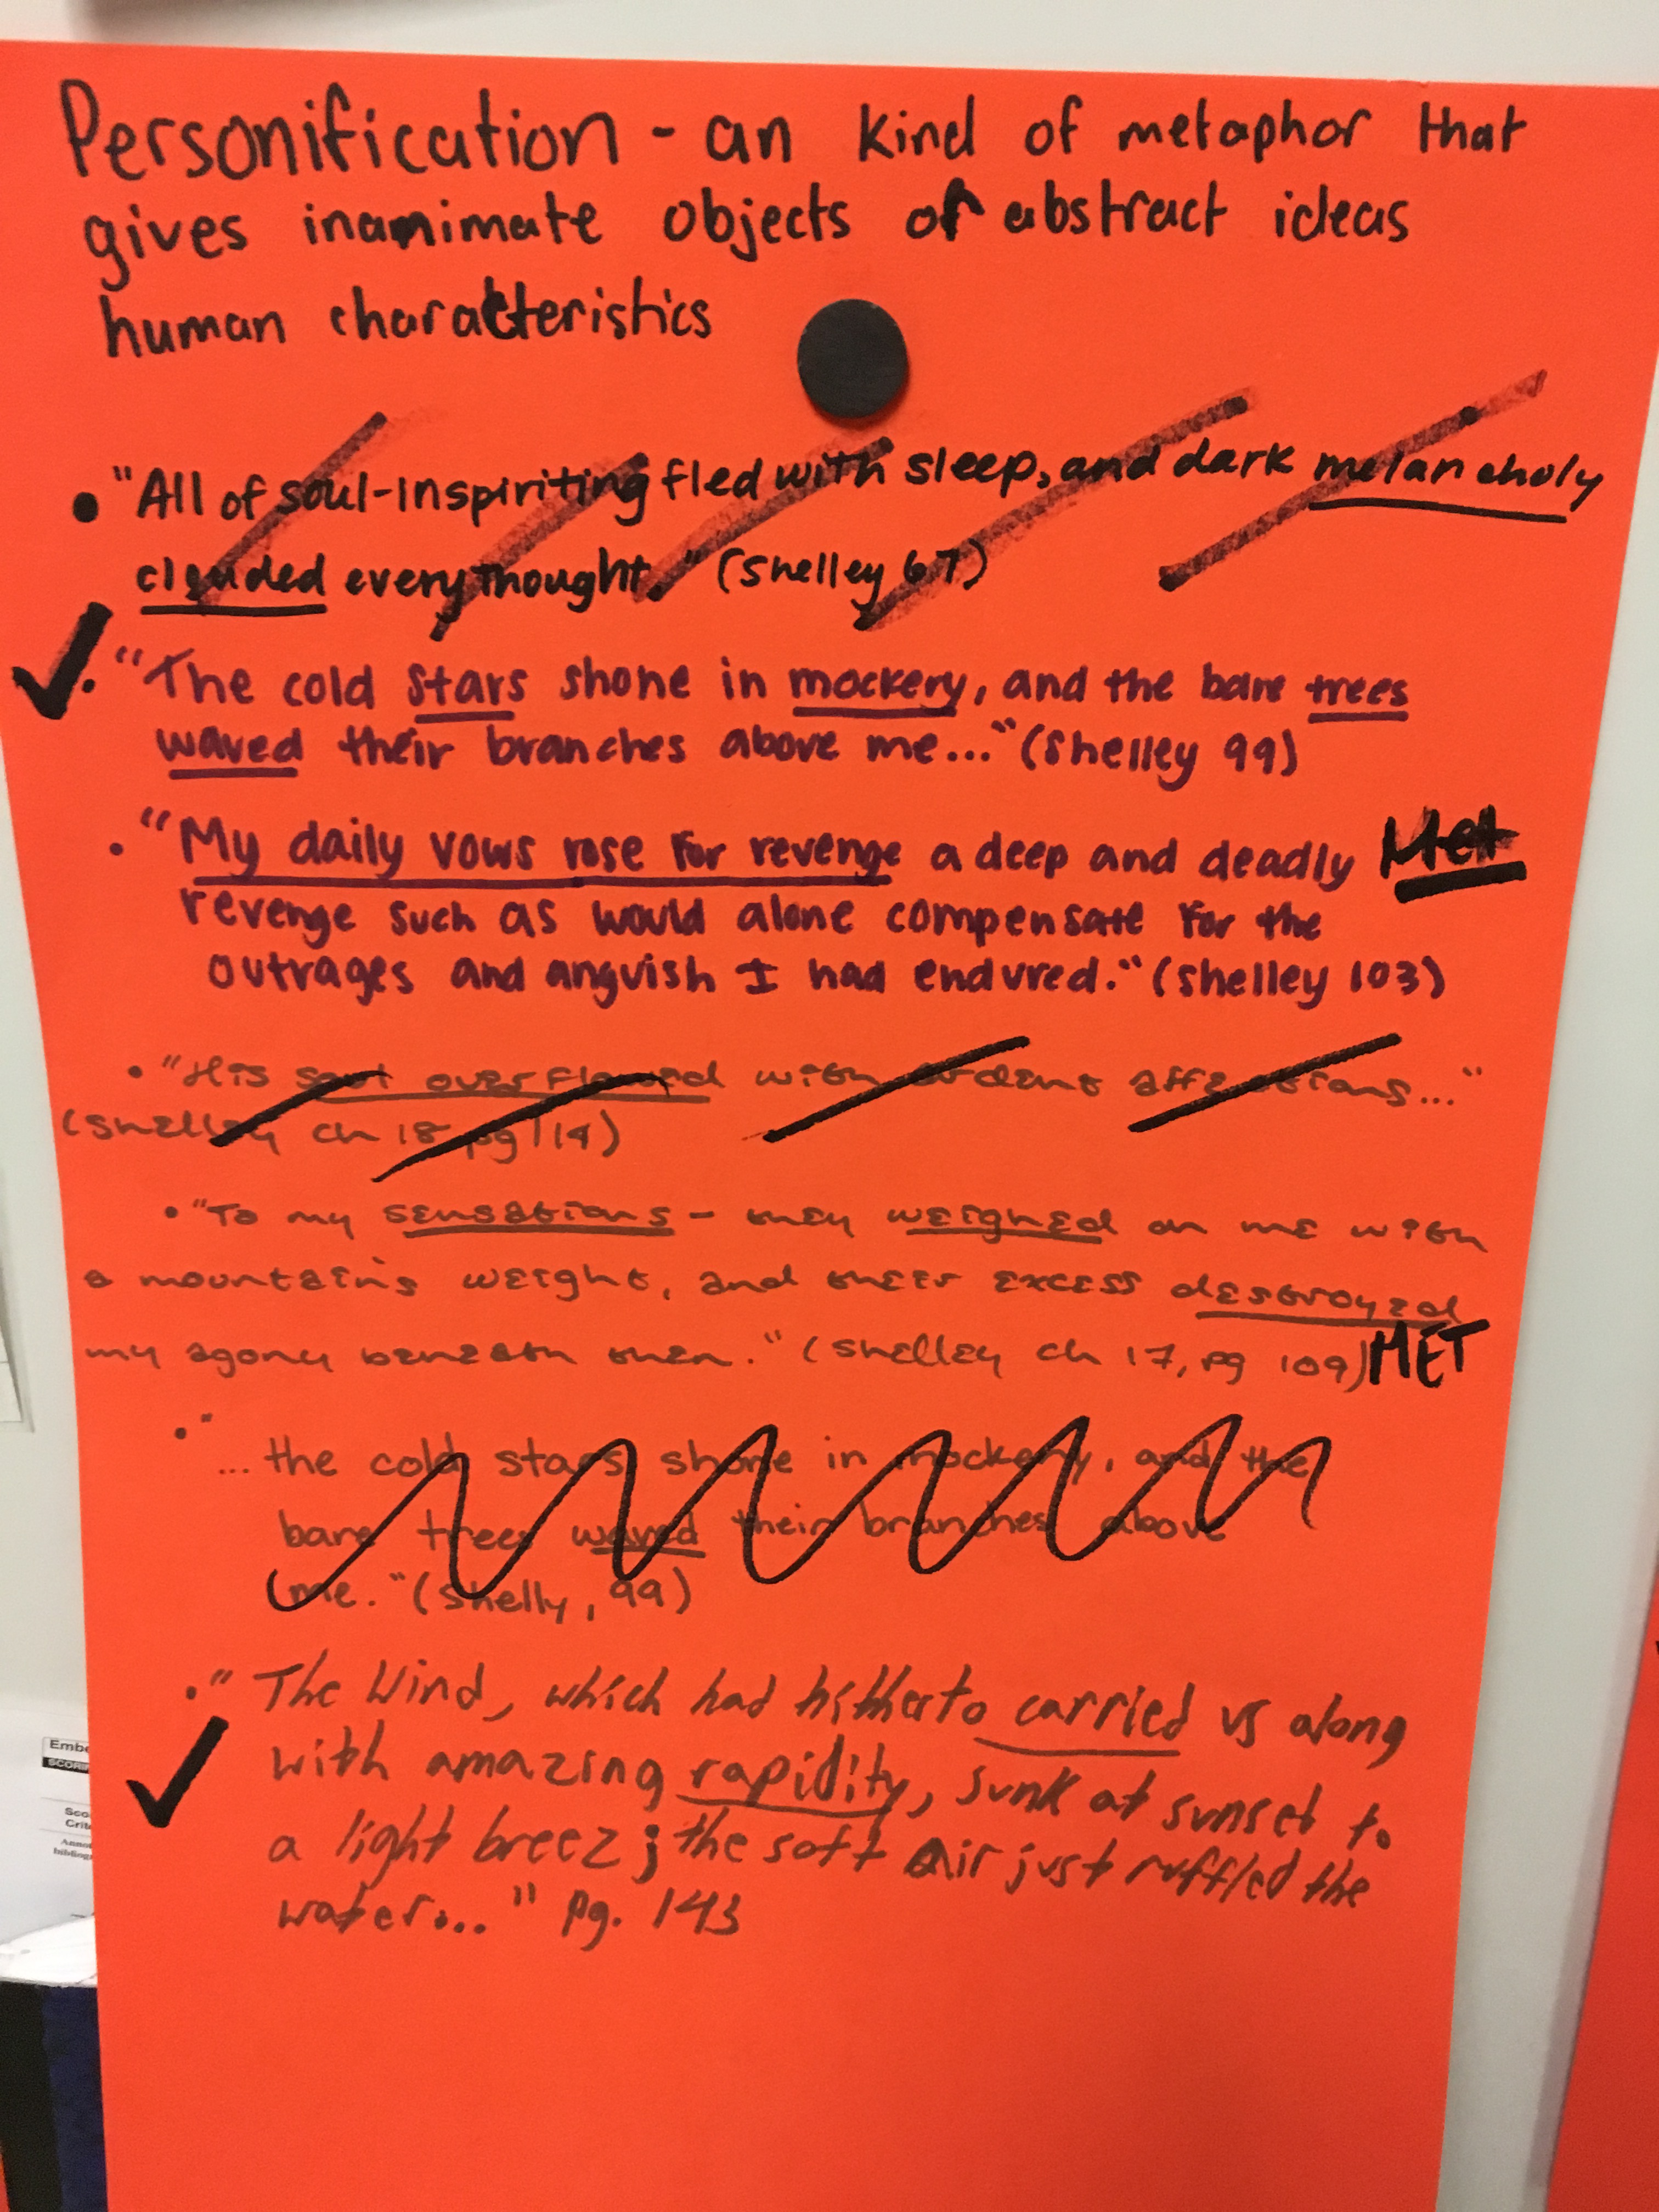 Personification - an kind of metaphor that
gives inanimate objects or abstract ideas
human characteristics
• "All of soul-inspiriting fled with sleep, and dark melancholy
clouded every thought." (Shelley 67)
• "The cold stars shone in mockery, and the bare trees
waved their branches above me..." (Shelley 99)
• "My daily vows rose for revenge a deep and deadly Met
revenge such as would alone compensate for the
outrages and anguish I had endured." (Shelley 103)
• "His soul overflowed with ardent affections..."
(Shelley ch 18 pg 114)
• "To my sensations - they weighed on me with
a mountain's weight, and their excess destroyed
my agony beneath them." (Shelley ch 17, pg 109) MET
• "
... the cold stars shone in mockery, and the
bare trees waved their branches above
me." (Shelly, 99)
• "The Wind, which had hitherto carried us along
with amazing rapidity, sunk at sunset to
a light breez; the soft air just ruffled the
water..." pg. 143
Embe
SCORIN
Sco
Crite
Anno
bibliog